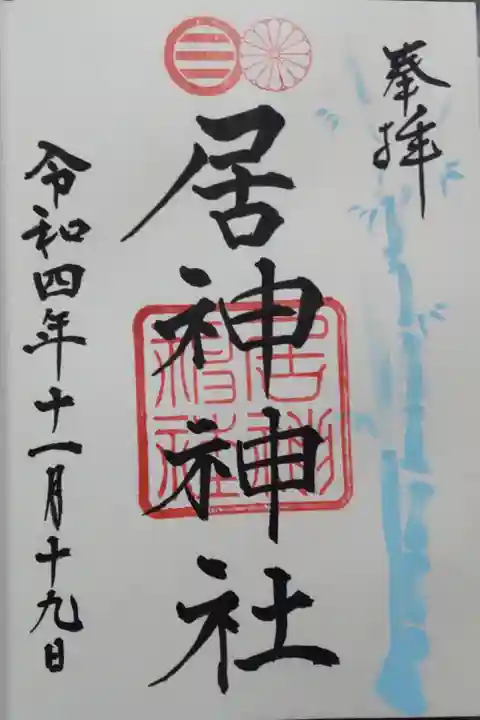 奉拝
居神神社
令和四年十一月十九日